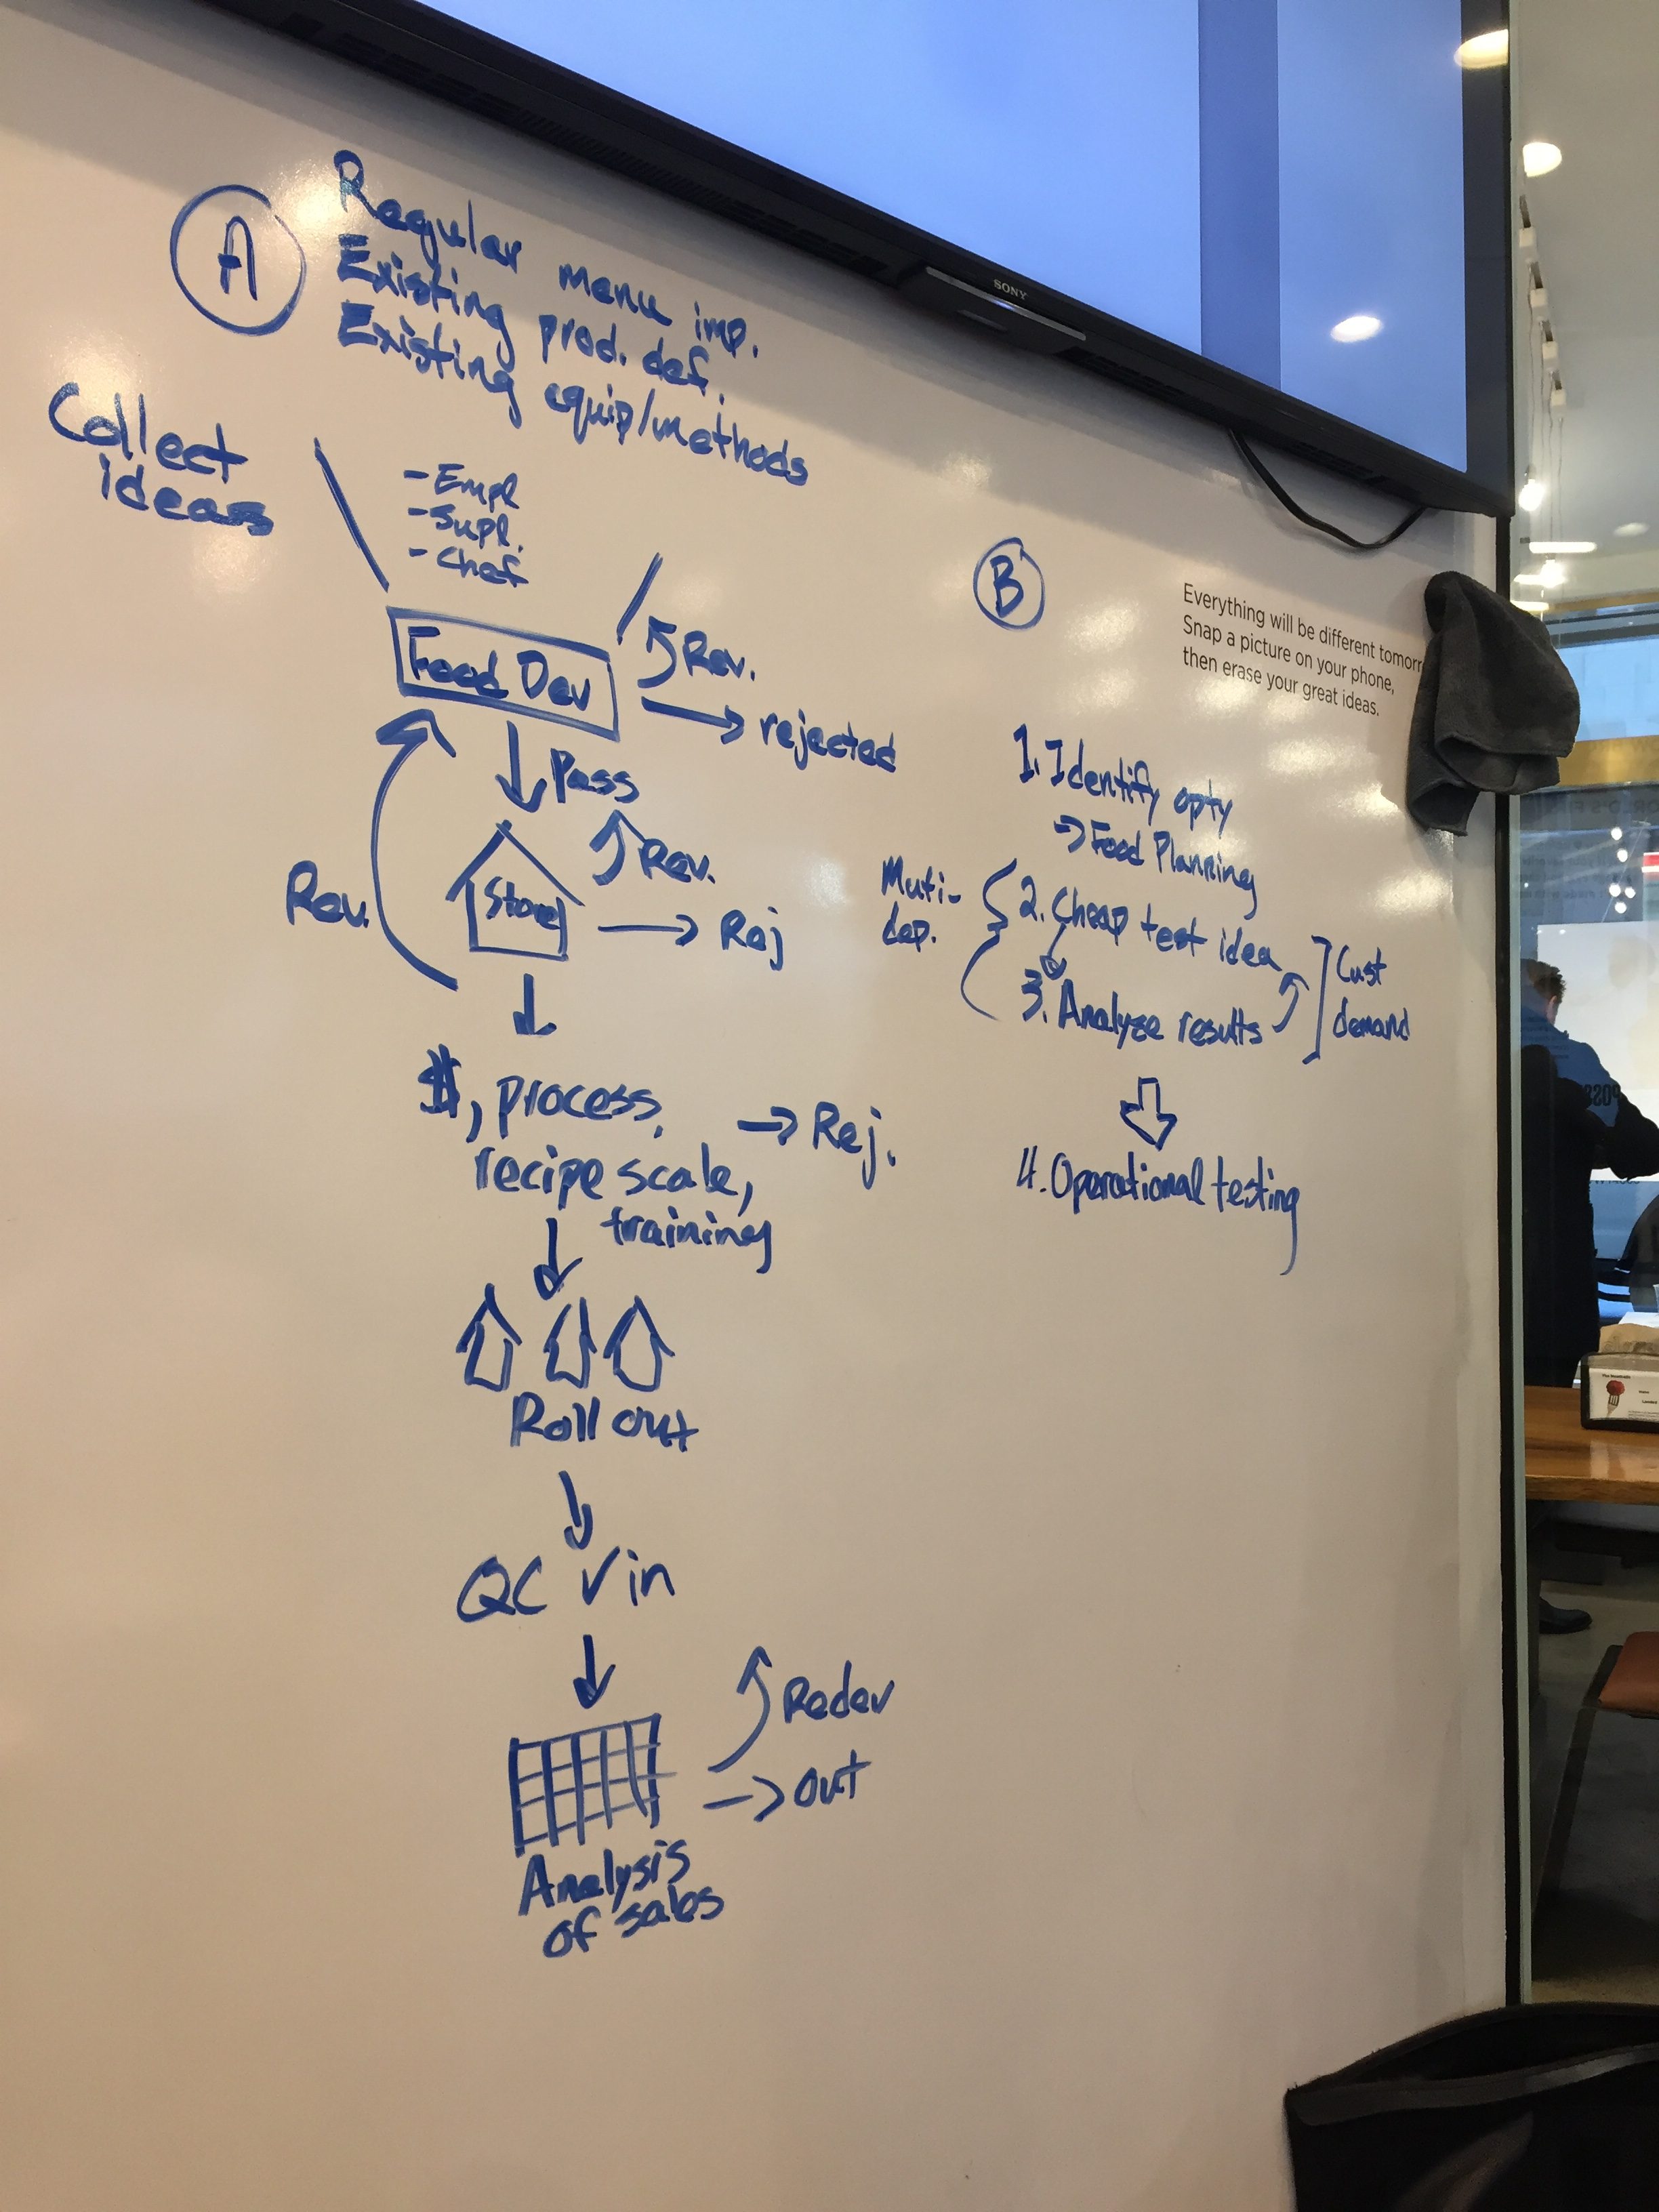 SONY
A
Regular menu imp.
Existing prod. def.
Existing equip/methods
Collect
ideas
- Empl
- Supl.
- Chef
Food Dev
Rev.
rejected
Pass
Rev.
Store
Rev.
Rej
$, process,
recipe scale,
training
→ Rej.
Roll out
QC √ in
Redev
→ out
Analysis
of sales
B
Everything will be different tomorr
Snap a picture on your phone,
then erase your great ideas.
1. Identify opty
→ Food Planning
Muti-
dep.
2. Cheap test idea
3. Analyze results
Cust
demand
4. Operational testing